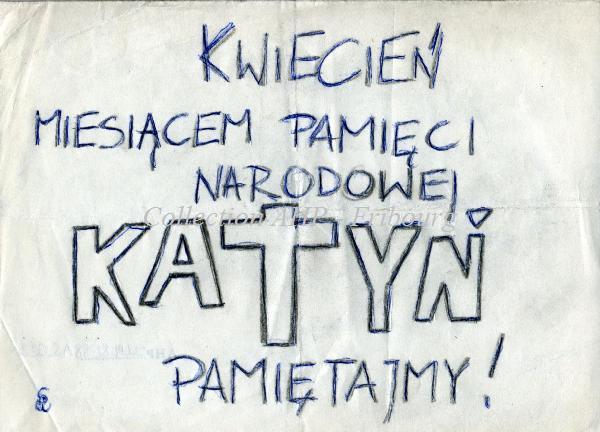 KWIECIEŃ
MIESIĄCEM PAMIĘCI
NARODOWEJ
Collection AHP - Fribourg
KATYŃ
PAMIĘTAJMY!